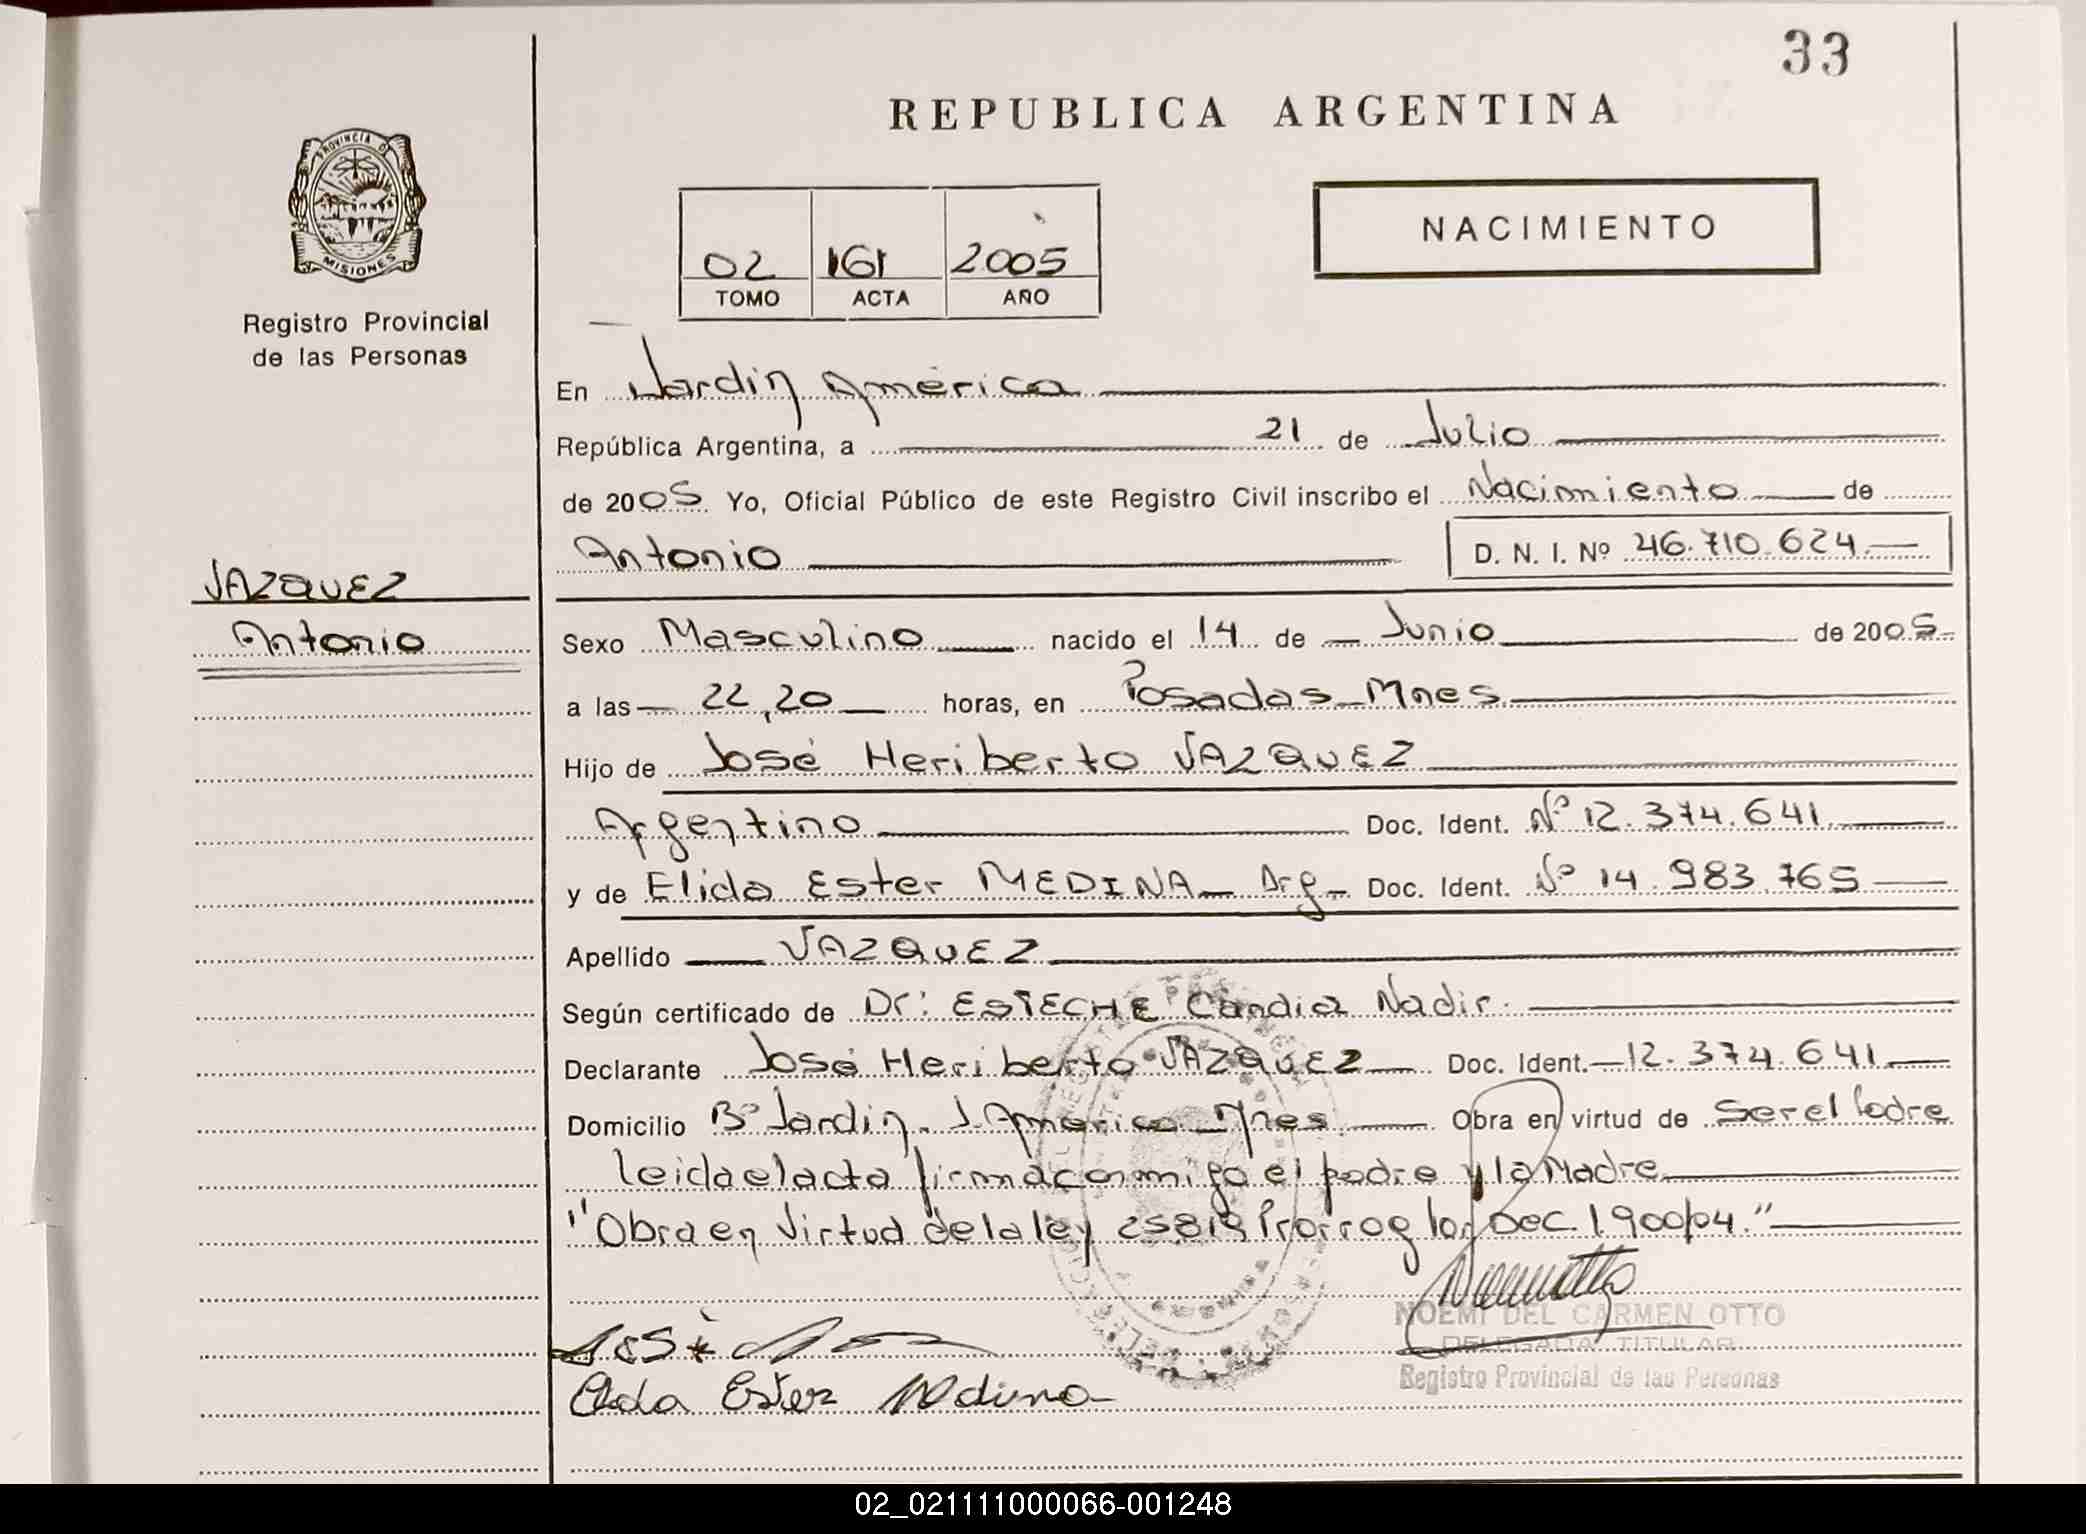 33
REPUBLICA ARGENTINA
PROVINCIA DE
MISIONES
Registro Provincial
de las Personas
NACIMIENTO
02 161 2005
TOMO ACTA AÑO
En Jardín América
República Argentina, a 21 de Julio
de 2005 Yo, Oficial Público de este Registro Civil inscribo el Nacimiento de
Antonio D. N. I. Nº 46.710.624
VAZQUEZ
Antonio
Sexo Masculino nacido el 14 de Junio de 2005
a las 22,20 horas, en Posadas-Mnes
Hijo de José Heriberto VAZQUEZ
Argentino Doc. Ident. Nº 12.374.641
y de Elida Ester MEDINA - Arg- Doc. Ident. Nº 14.983.765
Apellido VAZQUEZ
Según certificado de Dr: ESTECHE Candia Nadir.
Declarante José Heriberto VAZQUEZ Doc. Ident. 12.374.641
Domicilio Bº Jardín. J. América - Mnes Obra en virtud de Ser el Padre
leida el acta firma conmigo el padre y la Madre
"Obra en virtud de la ley 25819 Prorrog por Dec. 1900/04."
NOEMI DEL CARMEN OTTO
DELEGADA TITULAR
Registro Provincial de las Personas
Ester Medina
02_021111000066-001248